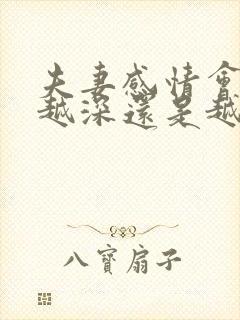 夫妻感情會
越深還是越
八寶扇子